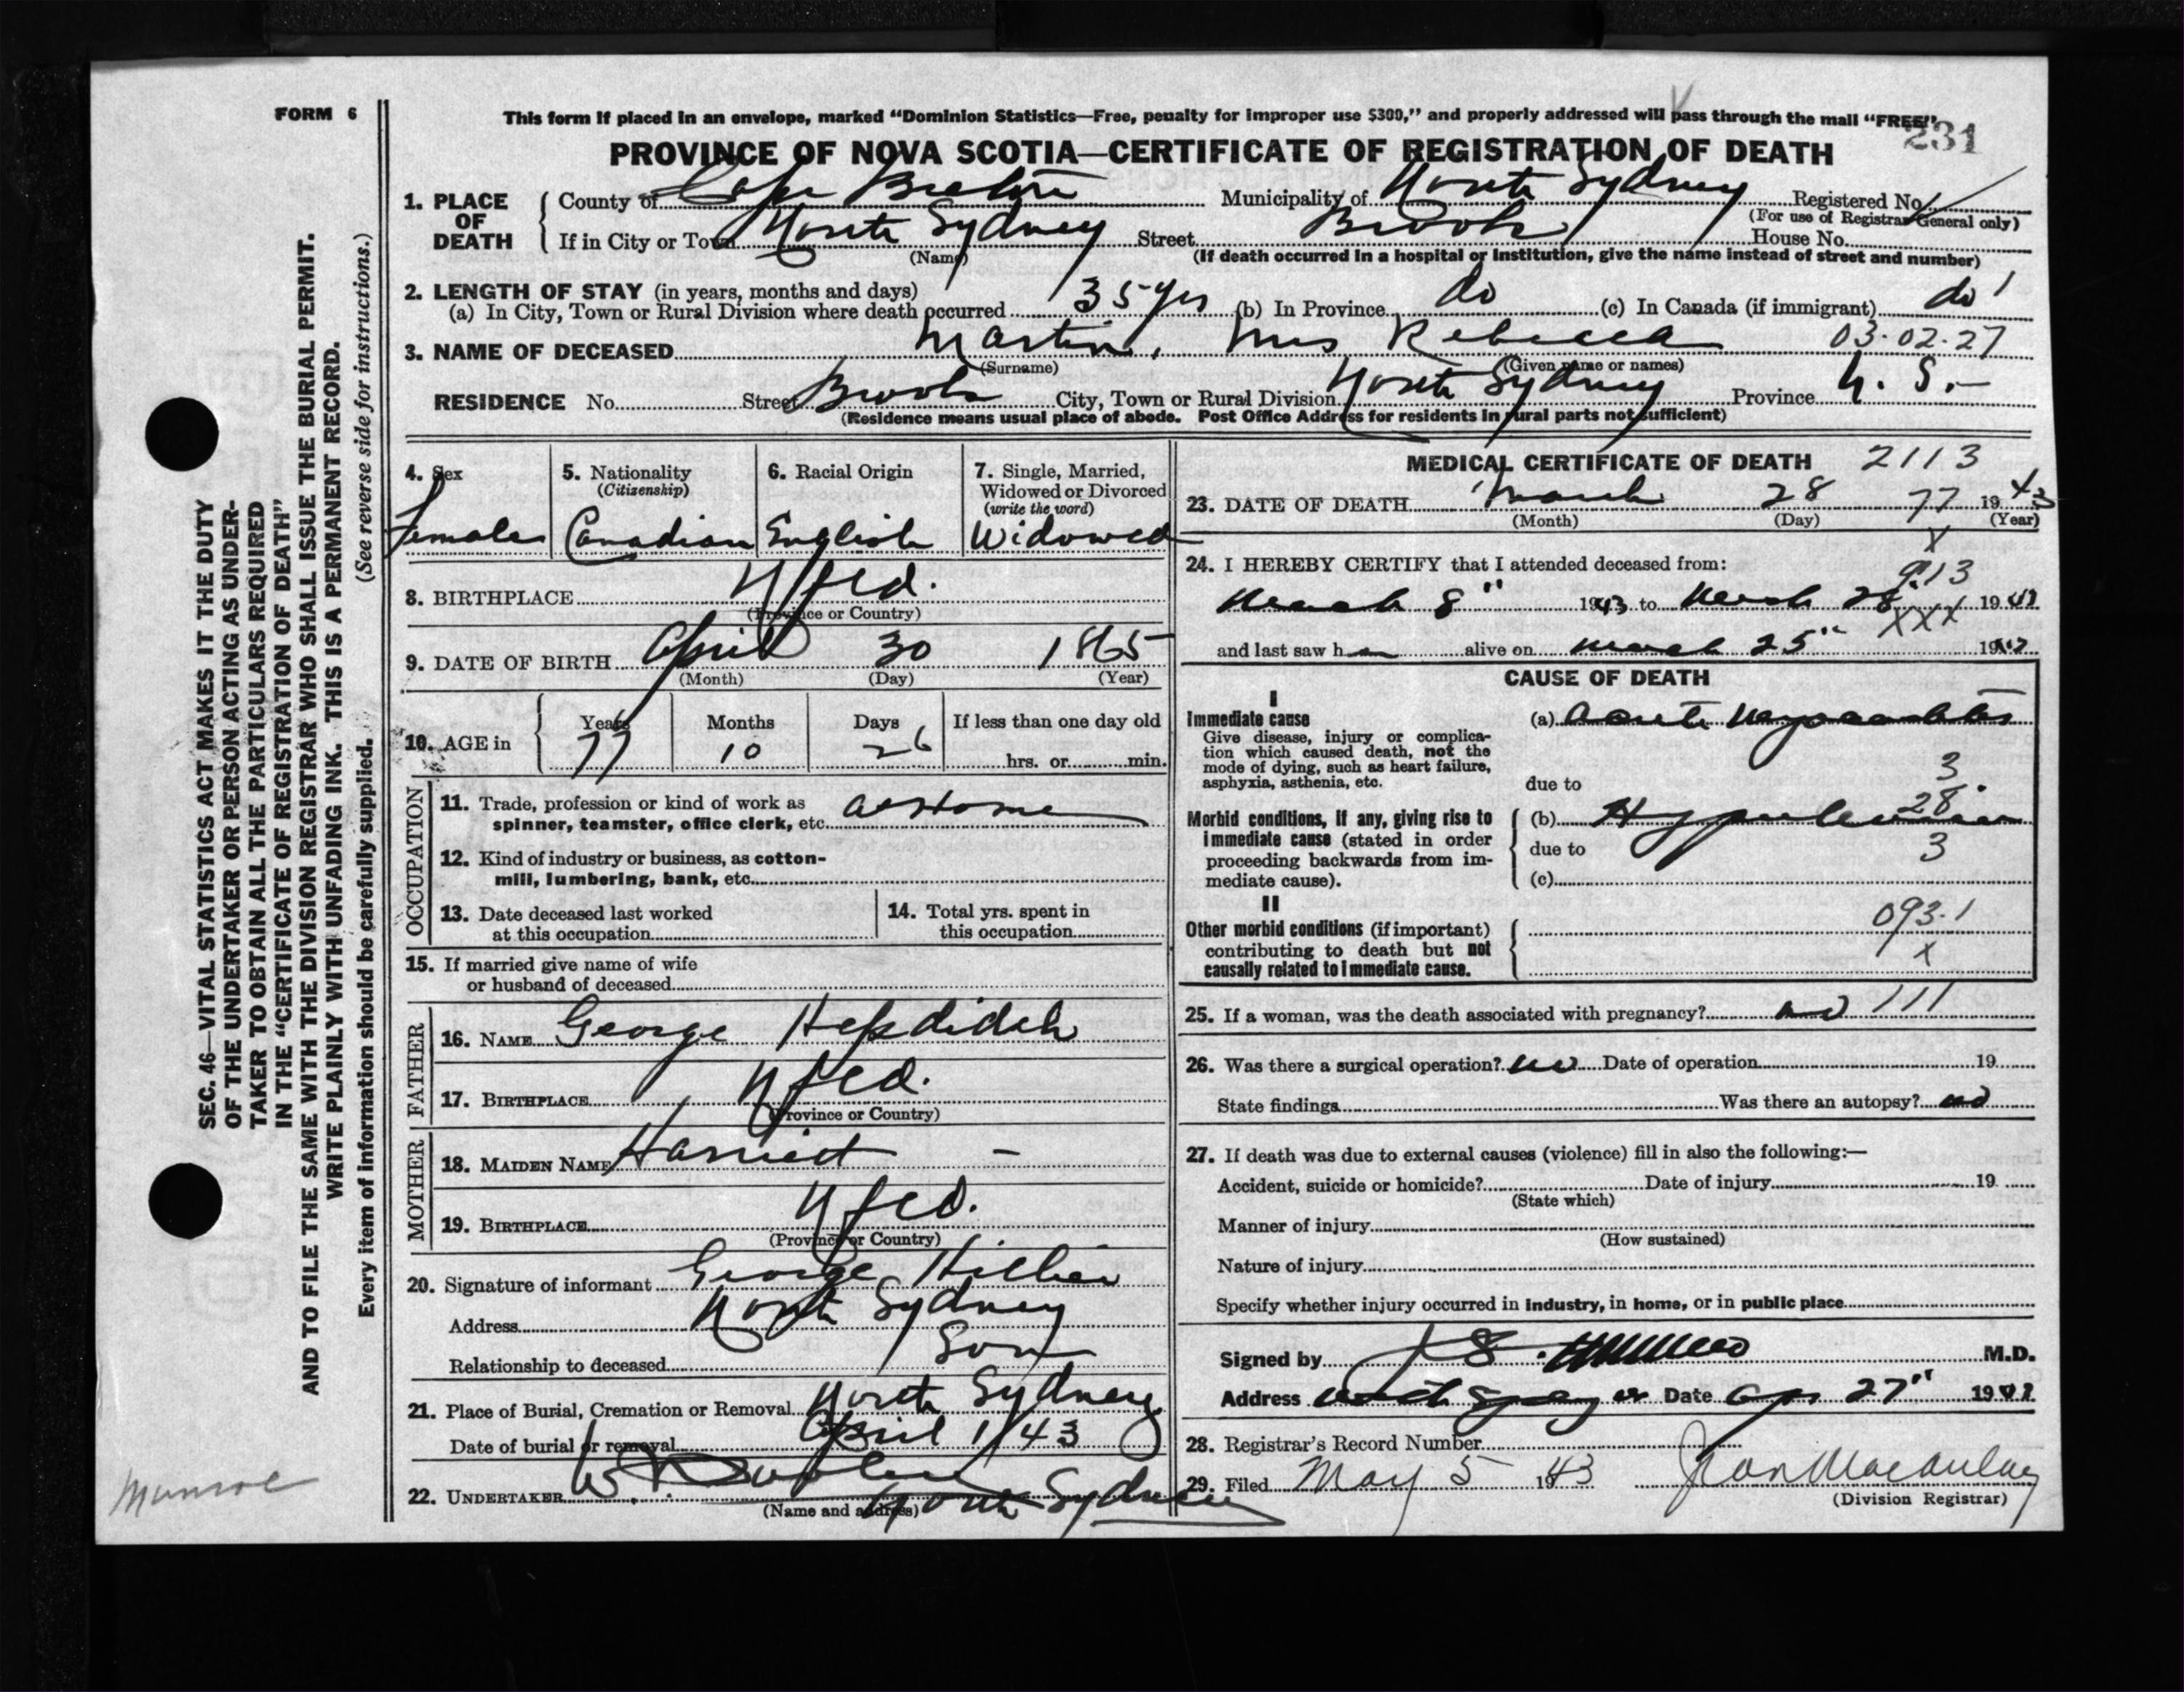 FORM 6
This form if placed in an envelope, marked “Dominion Statistics—Free, penalty for improper use $300,” and properly addressed will pass through the mail “FREE”.
231
PROVINCE OF NOVA SCOTIA—CERTIFICATE OF REGISTRATION OF DEATH
1. PLACE OF DEATH
County of Cape Breton Municipality of North Sydney Registered No.
(For use of Registrar General only)
If in City or Town North Sydney Street Brook House No.
(Name) (If death occurred in a hospital or institution, give the name instead of street and number)
2. LENGTH OF STAY (in years, months and days)
(a) In City, Town or Rural Division where death occurred 35 yrs (b) In Province do (c) In Canada (if immigrant) do
3. NAME OF DECEASED Martin, Mrs Rebecca 03-02-27
(Surname) (Given name or names)
RESIDENCE No. Street Brook City, Town or Rural Division North Sydney Province N. S.
(Residence means usual place of abode. Post Office Address for residents in rural parts not sufficient)
4. Sex
Female
5. Nationality
(Citizenship)
Canadian
6. Racial Origin
English
7. Single, Married,
Widowed or Divorced
(write the word)
Widowed
8. BIRTHPLACE Nfld.
(Province or Country)
9. DATE OF BIRTH April 30 1865
(Month) (Day) (Year)
10. AGE in
Years Months Days If less than one day old
77 10 26 hrs. or min.
OCCUPATION
11. Trade, profession or kind of work as
spinner, teamster, office clerk, etc. at Home
12. Kind of industry or business, as cotton-
mill, lumbering, bank, etc.
13. Date deceased last worked
at this occupation
14. Total yrs. spent in
this occupation
15. If married give name of wife
or husband of deceased
FATHER
16. NAME George Hepdidch
17. BIRTHPLACE Nfld.
(Province or Country)
MOTHER
18. MAIDEN NAME Harriet –
19. BIRTHPLACE Nfld.
(Province or Country)
20. Signature of informant George Hillier
Address North Sydney
Relationship to deceased Son
21. Place of Burial, Cremation or Removal North Sydney
Date of burial or removal April 1/43
22. UNDERTAKER North Sydney
(Name and address)
MEDICAL CERTIFICATE OF DEATH 2113
23. DATE OF DEATH March 28 77 1943
(Month) (Day) (Year)
X
24. I HEREBY CERTIFY that I attended deceased from:
9.13
March 8" 1943 to March 28 19
XXX
and last saw h alive on March 25" 19
CAUSE OF DEATH
I
Immediate cause
Give disease, injury or complica-
tion which caused death, not the
mode of dying, such as heart failure,
asphyxia, asthenia, etc.
(a) Acute Myocarditis
3
due to
28
Morbid conditions, if any, giving rise to
immediate cause (stated in order
proceeding backwards from im-
mediate cause).
(b) Hypertension
due to 3
(c)
II
Other morbid conditions (if important)
contributing to death but not
causally related to immediate cause.
093.1
X
25. If a woman, was the death associated with pregnancy? no 111
26. Was there a surgical operation? no Date of operation 19
State findings Was there an autopsy? no
27. If death was due to external causes (violence) fill in also the following:—
Accident, suicide or homicide? Date of injury 19
(State which)
Manner of injury
(How sustained)
Nature of injury
Specify whether injury occurred in industry, in home, or in public place
Signed by M.D.
Address Date Apr 27" 19
28. Registrar's Record Number
29. Filed May 5 1943 Jean Macaulay
(Division Registrar)
SEC. 46—VITAL STATISTICS ACT MAKES IT THE DUTY
OF THE UNDERTAKER OR PERSON ACTING AS UNDER-
TAKER TO OBTAIN ALL THE PARTICULARS REQUIRED
IN THE “CERTIFICATE OF REGISTRATION OF DEATH”
AND TO FILE THE SAME WITH THE DIVISION REGISTRAR WHO SHALL ISSUE THE BURIAL PERMIT.
WRITE PLAINLY WITH UNFADING INK. THIS IS A PERMANENT RECORD.
Every item of information should be carefully supplied. (See reverse side for instructions.)
Munroe